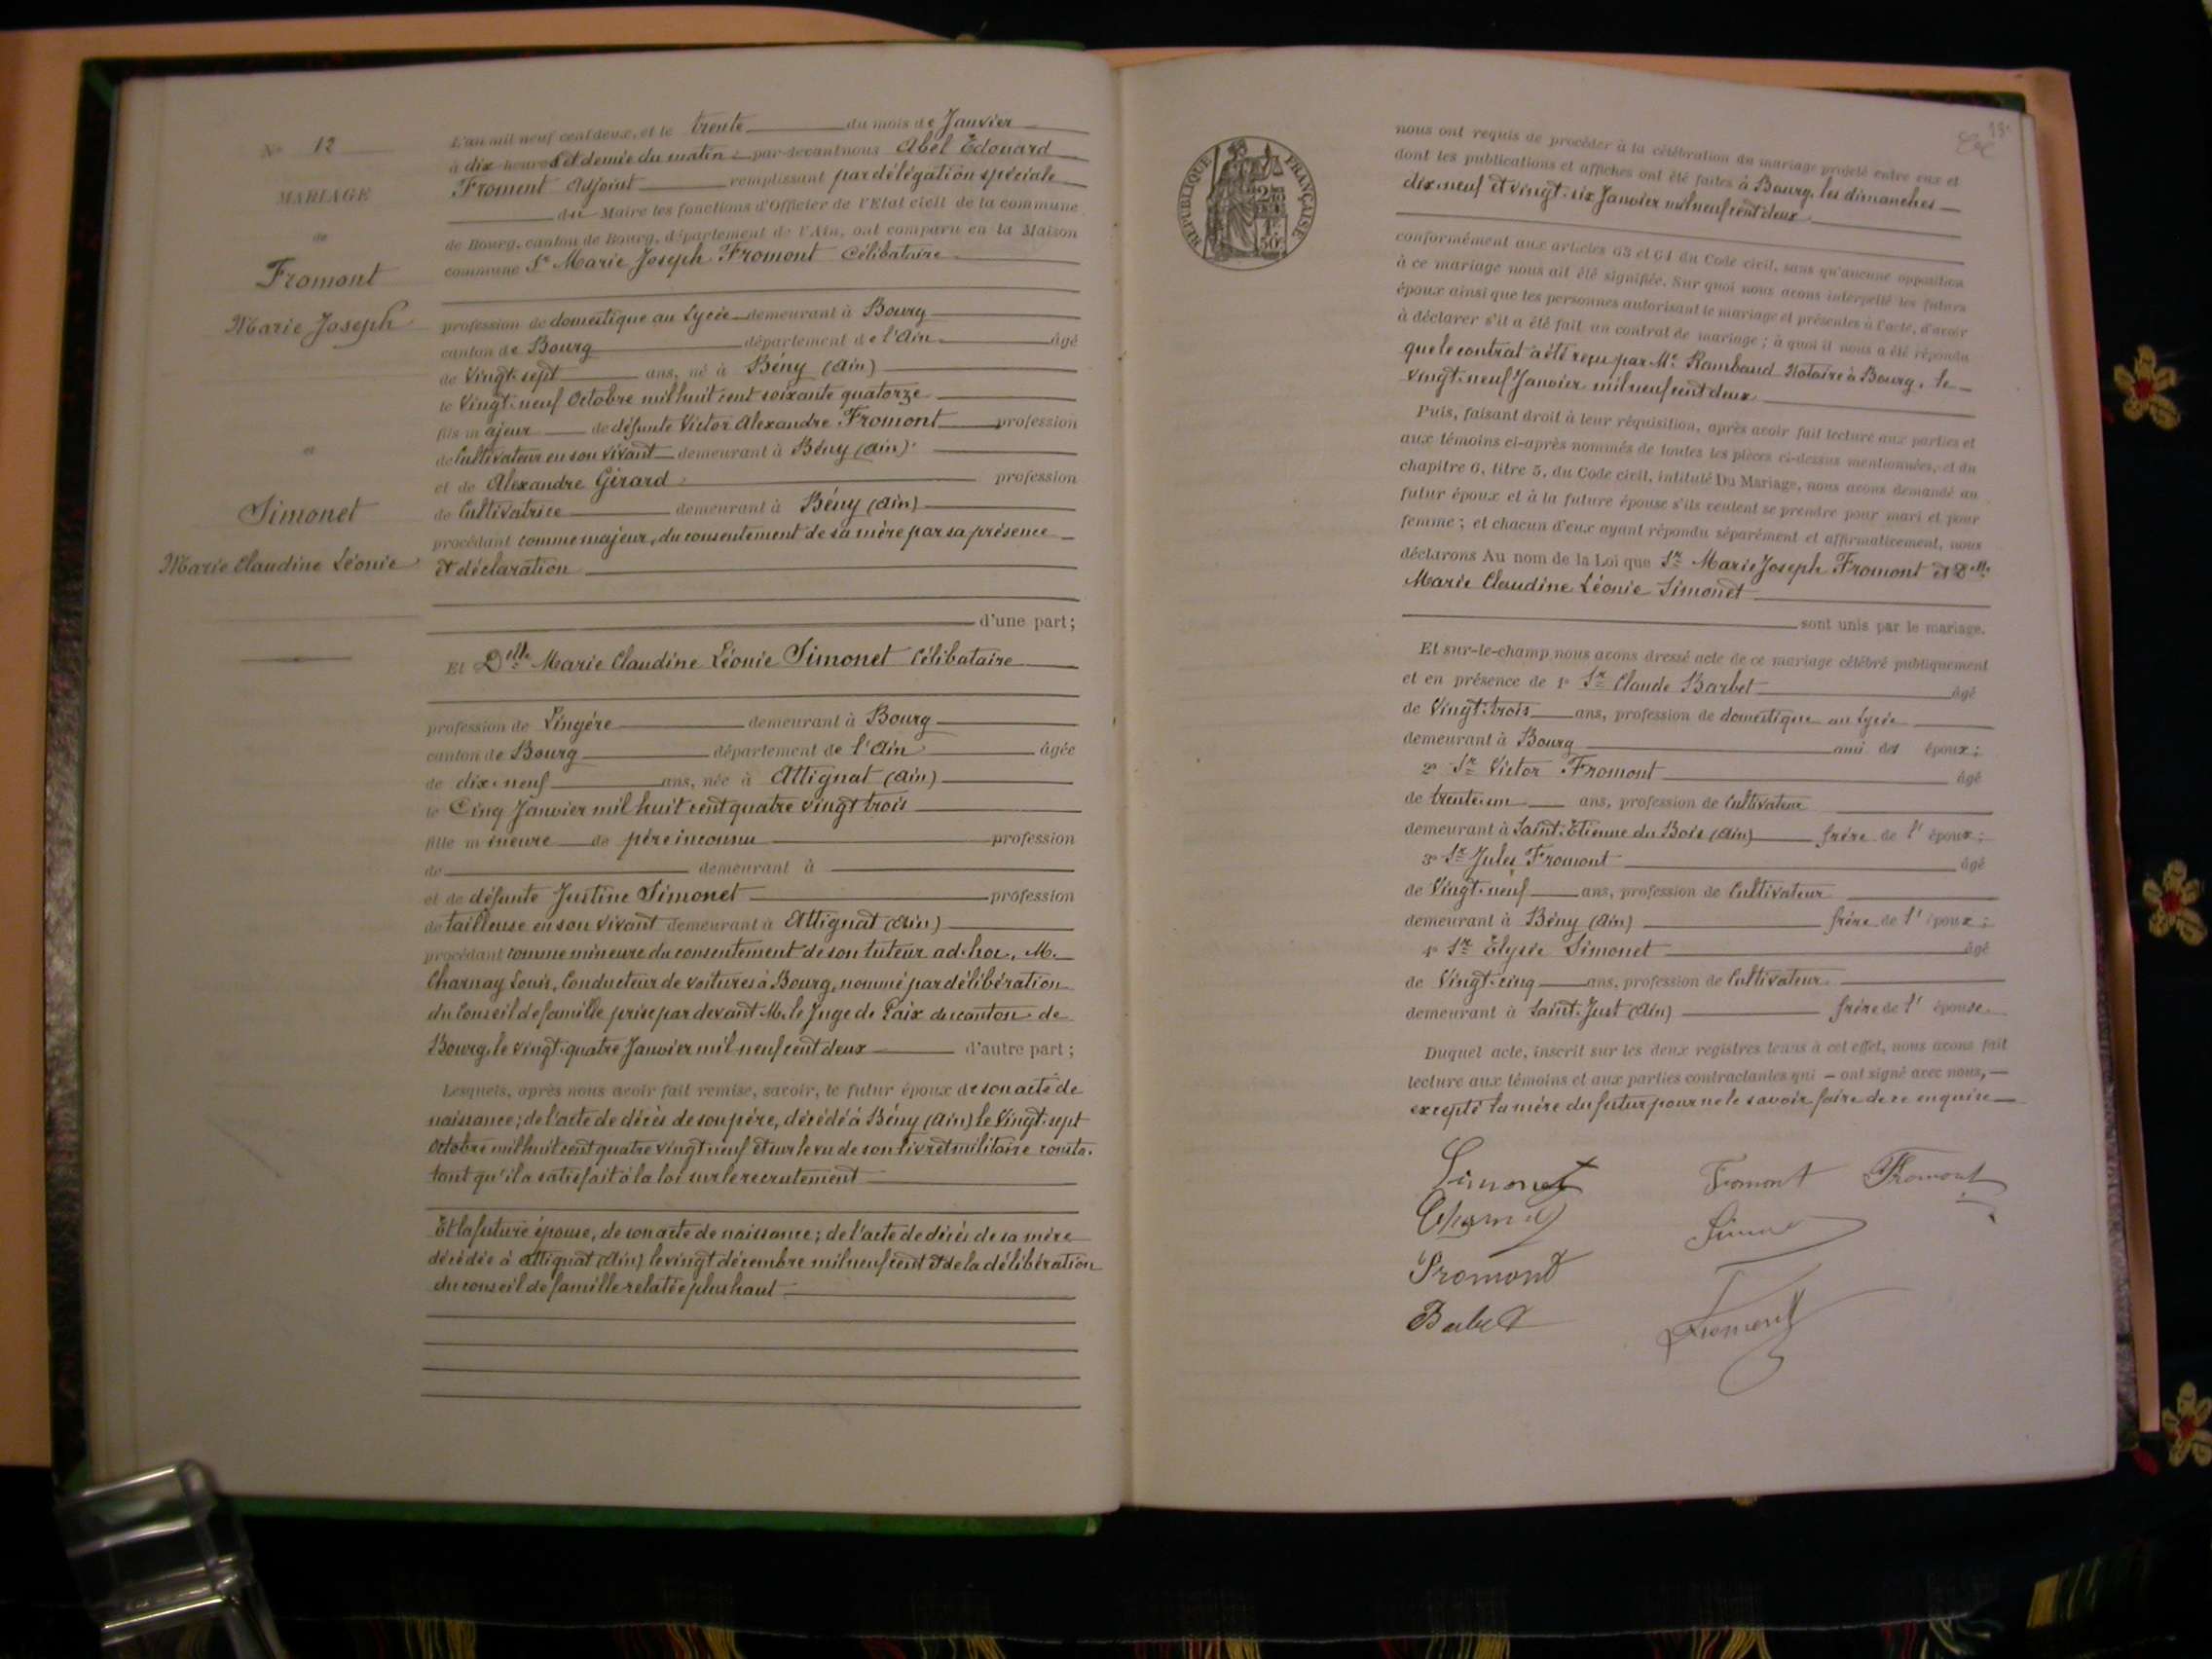 N° 12
MARIAGE
de
Fromont
Marie Joseph
et
Simonet
Marie Claudine Léonie
L'an mil neuf cent deux, et le trente du mois de Janvier
à dix heures et demie du matin par-devant nous Abel Edouard
Froment Adjoint remplissant par délégation spéciale
du Maire les fonctions d'Officier de l'Etat civil de la commune
de Bourg, canton de Bourg, département de l'Ain, ont comparu en la Maison
commune Sr Marie Joseph Fromont Célibataire
profession de domestique au Lycée demeurant à Bourg
canton de Bourg département de l'Ain âgé
de Vingt-sept ans, né à Bény (Ain)
le Vingt-neuf Octobre mil huit cent soixante quatorze
fils majeur de défunte Victor Alexandre Fromont profession
de Cultivateur en son vivant demeurant à Bény (Ain)
et de Alexandre Girard profession
de Cultivatrice demeurant à Bény (Ain)
procédant comme majeur, du consentement de sa mère par sa présence
et déclaration
d'une part;
Et Delle Marie Claudine Léonie Simonet Célibataire
profession de Lingère demeurant à Bourg
canton de Bourg département de l'Ain âgée
de dix-neuf ans, née à Attignat (Ain)
le Cinq Janvier mil huit cent quatre vingt trois
fille mineure de père inconnu profession
de demeurant à
et de défunte Justine Simonet profession
de tailleuse en son vivant demeurant à Attignat (Ain)
procédant comme mineure du consentement de son tuteur ad-hoc, M.
Charnay Louis, Conducteur de voitures à Bourg, nommé par délibération
du Conseil de famille prise par devant M. le Juge de Paix du canton de
Bourg, le vingt-quatre Janvier mil neuf cent deux d'autre part;
Lesquels, après nous avoir fait remise, savoir, le futur époux de son acte de
naissance; de l'acte de décès de son père, décédé à Bény (Ain) le Vingt-sept
Octobre mil huit cent quatre vingt neuf et sur le vu de son livret militaire consta-
tant qu'il a satisfait à la loi sur le recrutement
Et la future épouse, de son acte de naissance; de l'acte de décès de sa mère
décédée à Attignat (Ain) le vingt décembre mil neuf cent et de la délibération
du conseil de famille relatée plus haut
13
RÉPUBLIQUE FRANÇAISE
nous ont requis de procéder à la célébration du mariage projeté entre eux et
dont les publications et affiches ont été faites à Bourg, les dimanches
dix-neuf et vingt-six Janvier mil neuf cent deux
conformément aux articles 63 et 64 du Code civil, sans qu'aucune opposition
à ce mariage nous ait été signifiée. Sur quoi nous avons interpellé les futurs
époux ainsi que les personnes autorisant le mariage et présentes à l'acte, d'avoir
à déclarer s'il a été fait un contrat de mariage; à quoi il nous a été répondu
que le contrat a été reçu par Me Rambaud Notaire à Bourg, le
vingt-neuf Janvier mil neuf cent deux
Puis, faisant droit à leur réquisition, après avoir fait lecture aux parties et
aux témoins ci-après nommés de toutes les pièces ci-dessus mentionnées, et du
chapitre 6, titre 5, du Code civil, intitulé Du Mariage, nous avons demandé au
futur époux et à la future épouse s'ils veulent se prendre pour mari et pour
femme; et chacun d'eux ayant répondu séparément et affirmativement, nous
déclarons Au nom de la Loi que Sr Marie Joseph Fromont et Delle
Marie Claudine Léonie Simonet
sont unis par le mariage.
Et sur-le-champ nous avons dressé acte de ce mariage célébré publiquement
et en présence de 1° Sr Claude Barbet âgé
de Vingt-trois ans, profession de domestique au Lycée
demeurant à Bourg ami des époux;
2° Sr Victor Fromont âgé
de trente-un ans, profession de Cultivateur
demeurant à Saint-Etienne du Bois (Ain) frère de l'époux;
3° Sr Jules Fromont âgé
de Vingt-neuf ans, profession de Cultivateur
demeurant à Bény (Ain) frère de l'époux;
4° Sr Elysée Simonet âgé
de Vingt-cinq ans, profession de Cultivateur
demeurant à Saint-Just (Ain) frère de l'épouse.
Duquel acte, inscrit sur les deux registres tenus à cet effet, nous avons fait
lecture aux témoins et aux parties contractantes qui ont signé avec nous,
excepté la mère du futur pour ne le savoir faire de ce enquise
Simonet Fromont Fromont
Fromond